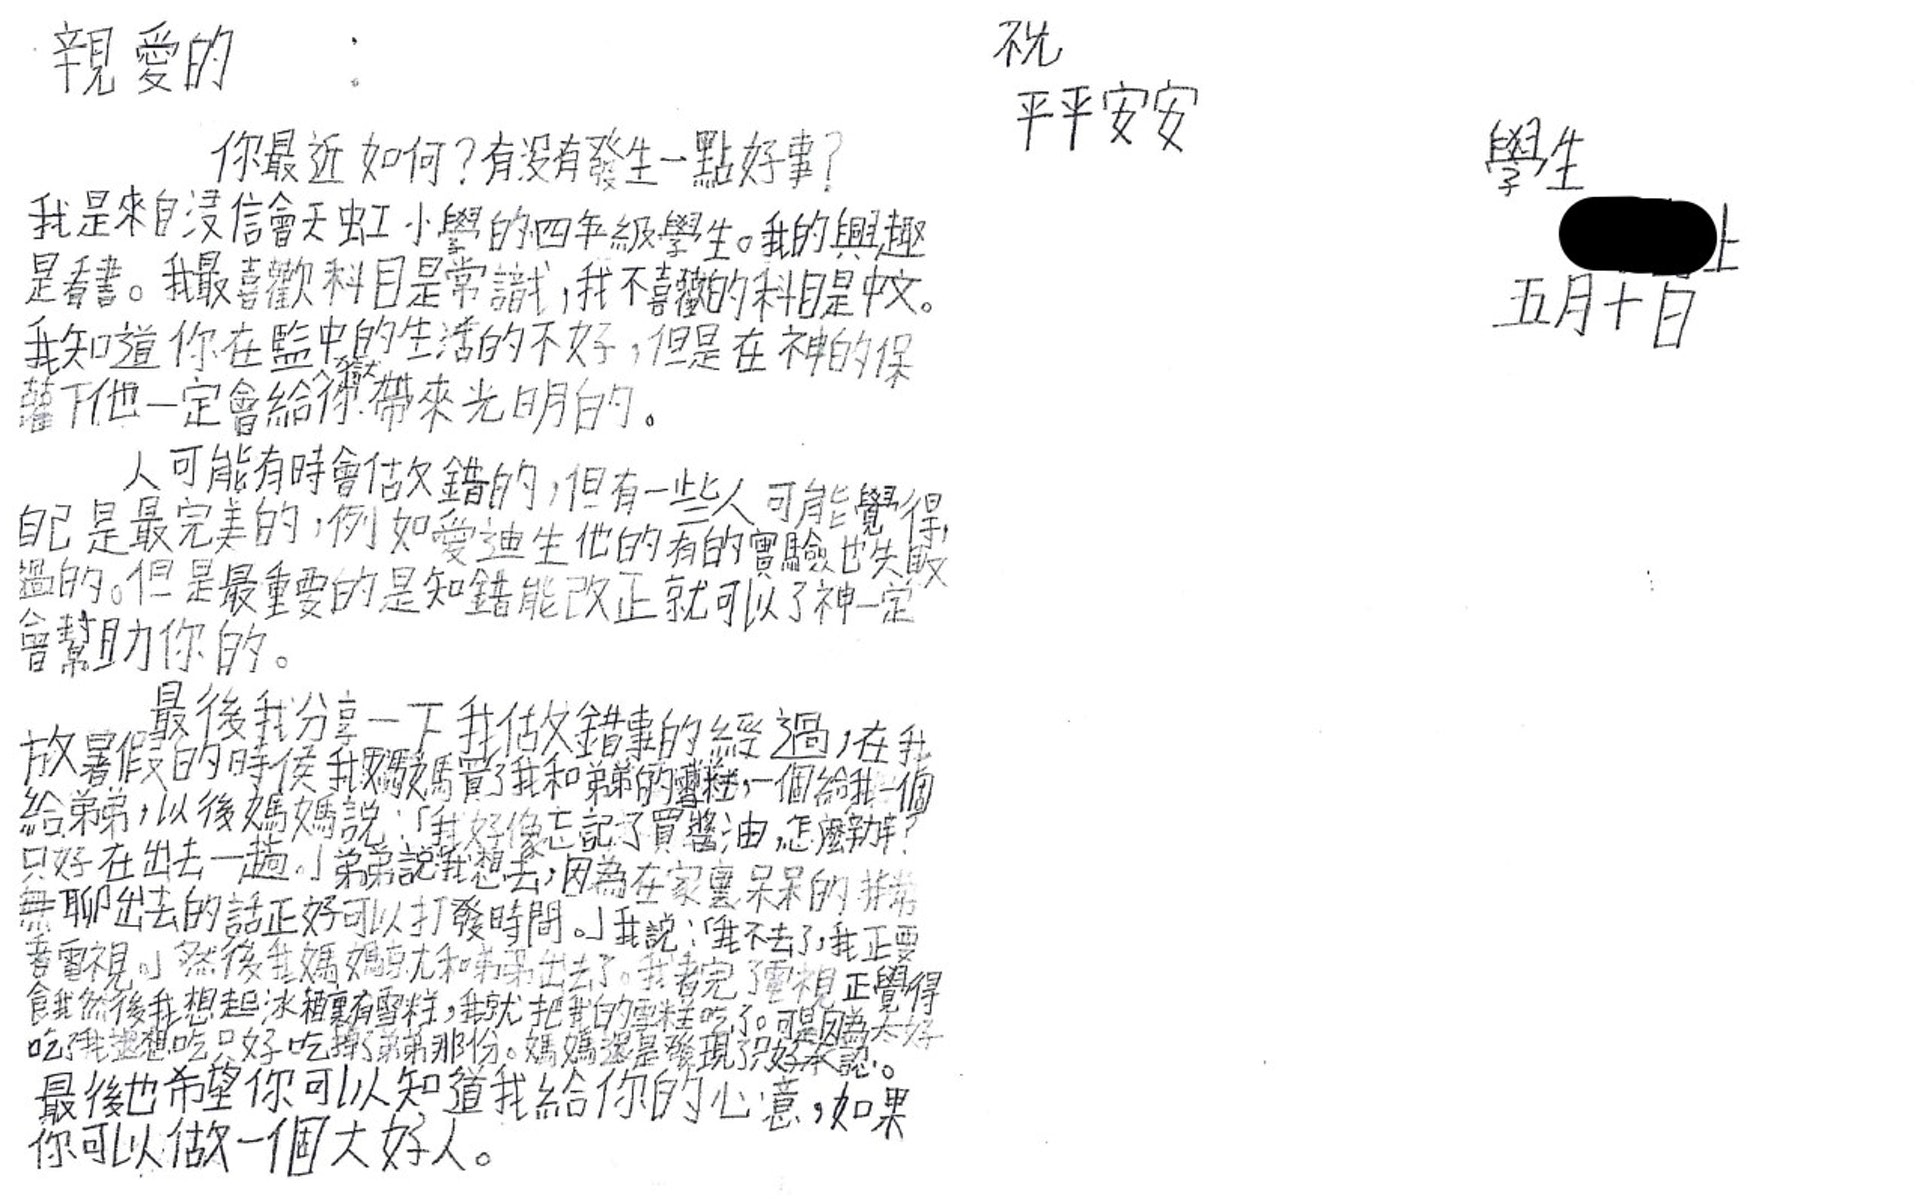 親愛的　　：
你最近如何？有没有發生一點好事？
我是來自浸信會天虹小學的四年級學生。我的興趣
是看書。我最喜歡科目是常識，我不喜歡的科目是中文。
我知道你在監獄中的生活的不好，但是在神的保
蘿下他一定會給你帶來光明的。
人可能有時會做錯的，但有一些人可能覺得，
自己是最完美的，例如愛迪生他的有的實驗也失敗
過的。但是最重要的是知錯能改正就可以了神一定
會幫助你的。
最後我分享一下我做錯事的經過，在我
放暑假的時侯我媽媽買了我和弟弟的雪糕，一個給我一個
給弟弟，以後媽媽説：「我好像忘記了買醬油，怎麼辦？
只好在出去一趟。」弟弟説我想去，因為在家裏呆呆的非常
無聊出去的話正好可以打發時間。」我説：「我不去了，我正要
看電視。」然後我媽媽就和弟弟出去了。我看完了電視正覺得
餓我然後我想起冰箱裏有雪糕，我就把我的雪糕吃了。可是因為太好
吃了我還想吃只好吃掉了弟弟那份。媽媽還是發現了只好承認。
最後也希望你可以知道我給你的心意，如果
你可以做一個大好人。
祝
平平安安
學生
上
五月十日